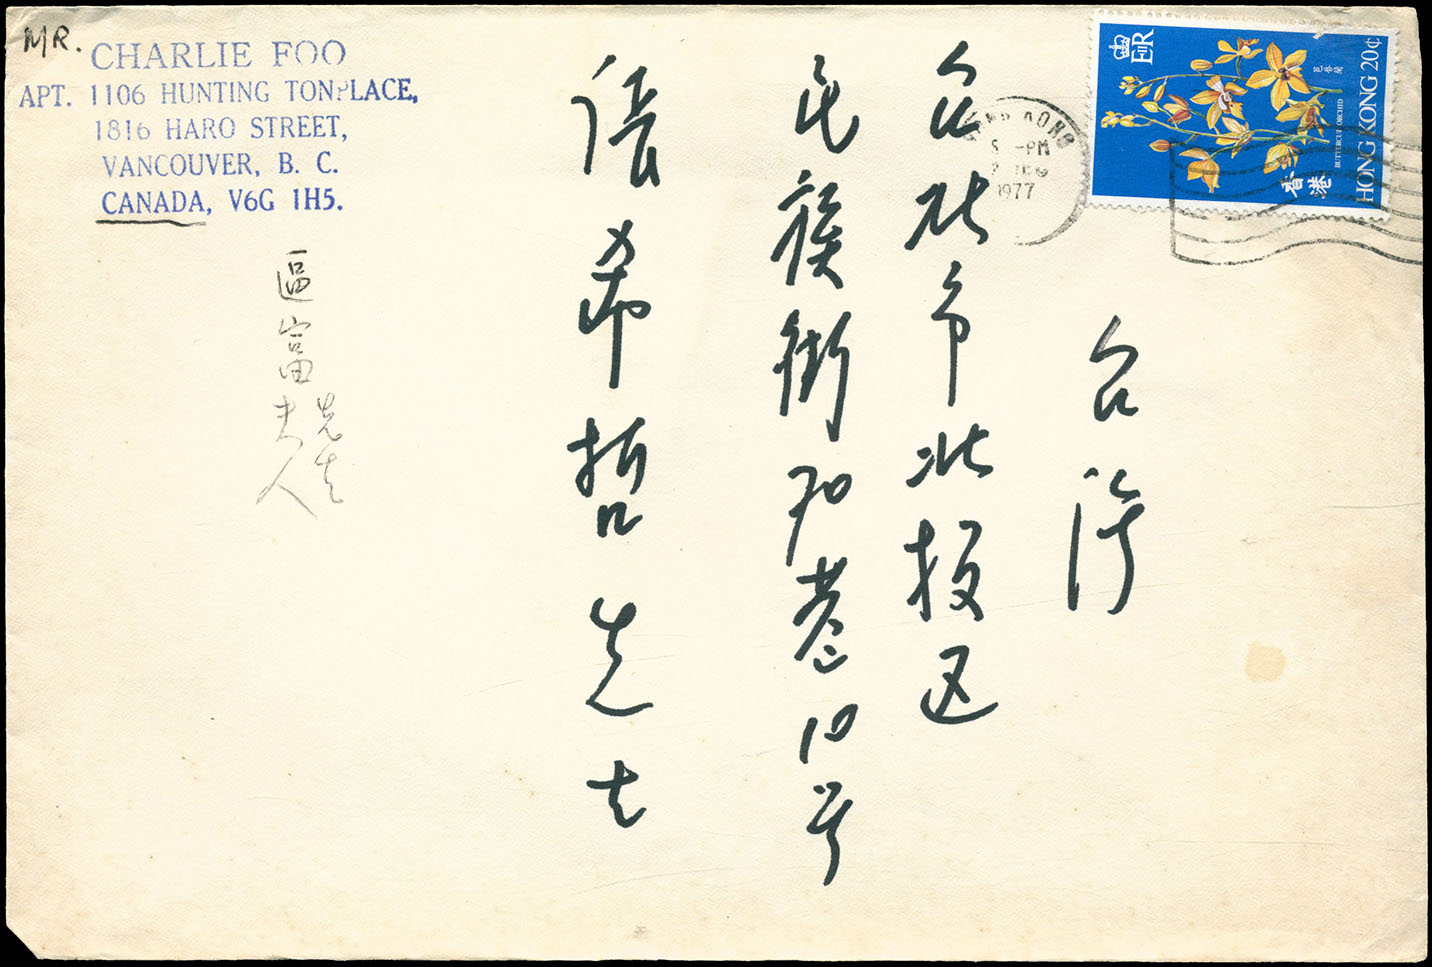 MR. CHARLIE FOO
APT. 1106 HUNTINGTON PLACE,
1816 HARO STREET,
VANCOUVER, B. C.
CANADA, V6G 1H5.
區富先生
夫人
EIIR
BUTTERCUP ORCHID
香港
HONG KONG 20¢
HONG KONG
PM
1977
台湾
台北市北投区
民族街70巷10号
張希哲先生